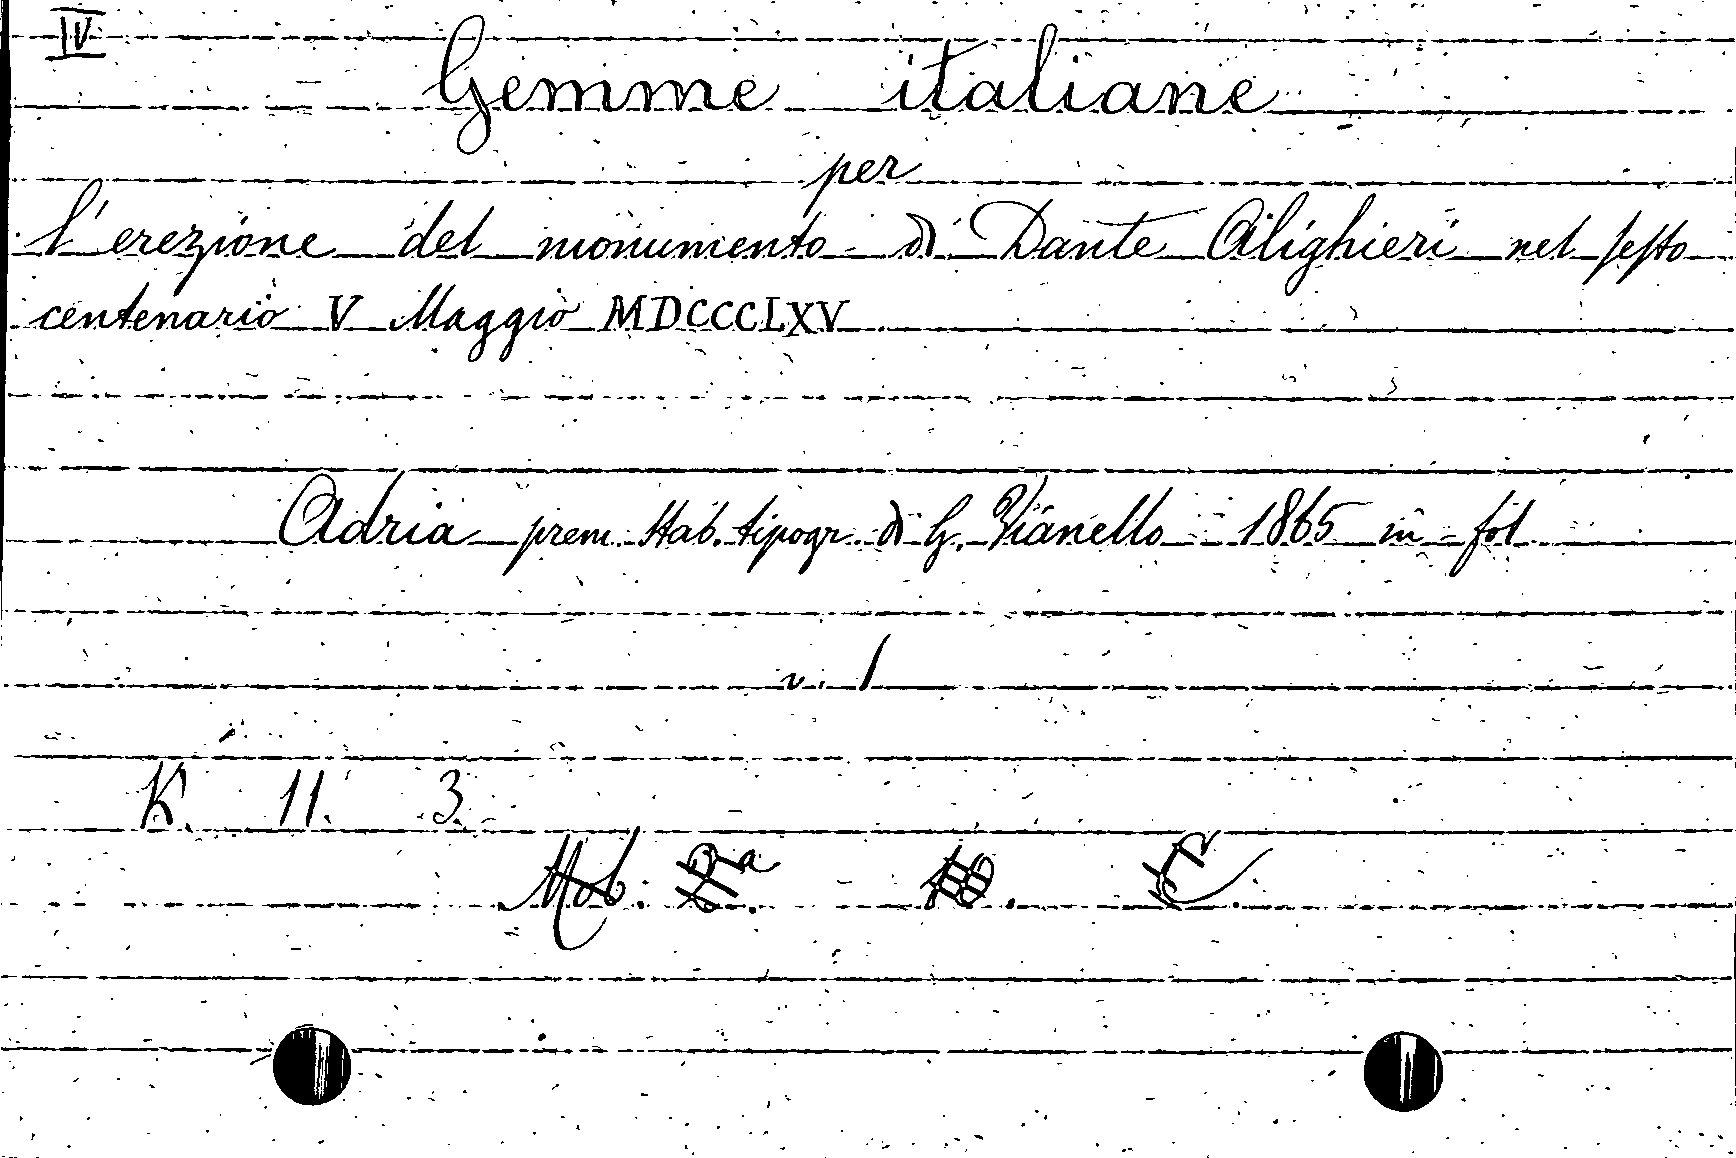 IV
Gemme italiane
per
l'erezione del monumento di Dante Alighieri nel sesto
centenario V Maggio MDCCCLXV
Adria prem. stab. tipogr. di G. Vianello 1865 in fol.
v. 1
K. 11. 3.
Mob.